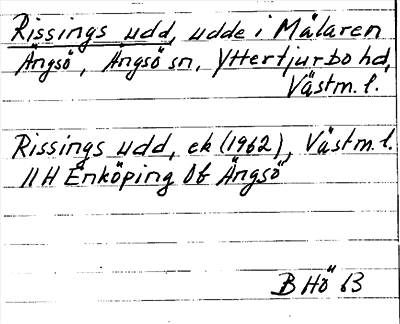 Rissings udd, udde i Mälaren
Ängsö, Ängsö sn, Yttertjurbo hd,
Västm. l.
Rissings udd, ek (1962), Västm. l.
11 H Enköping 0f Ängsö
B Hö 63